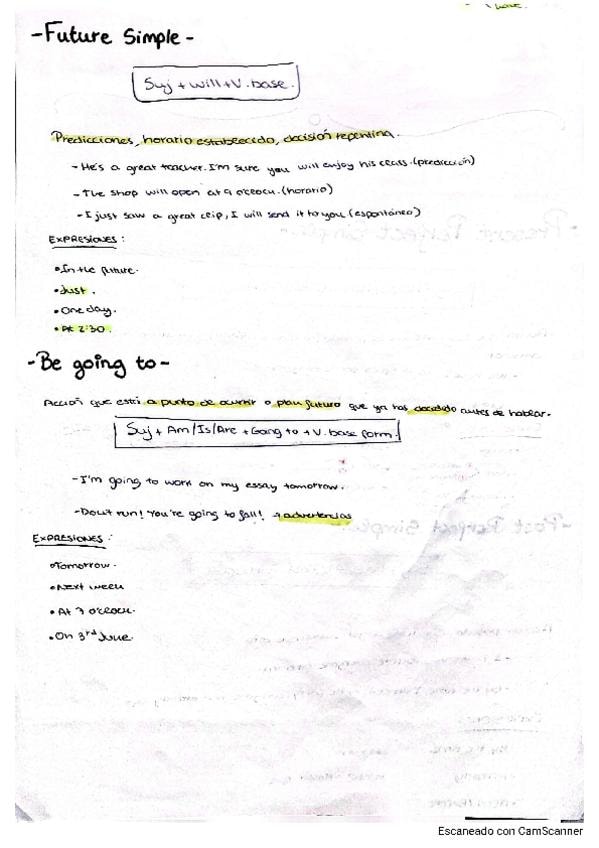 -Future Simple-
Suj + will + V. base.
Predicciones, horario establecido, decisión repentina.
- He's a great teacher. I'm sure you will enjoy his class. (predicción)
- The shop will open at 9 o'clock. (horario)
- I just saw a great clip, I will send it to you (espontáneo)
EXPRESIONES:
• In the future.
• Just.
• One day.
• At 2:30.
-Be going to-
Acción que está a punto de ocurrir o plan futuro que ya has decidido antes de hablar.
Suj + Am/Is/Are + Going to + V. base form.
- I'm going to work on my essay tomorrow.
- Don't run! You're going to fall! → advertencias
EXPRESIONES:
• Tomorrow.
• Next week
• At 7 o'clock.
• On 3rd June.
Escaneado con CamScanner